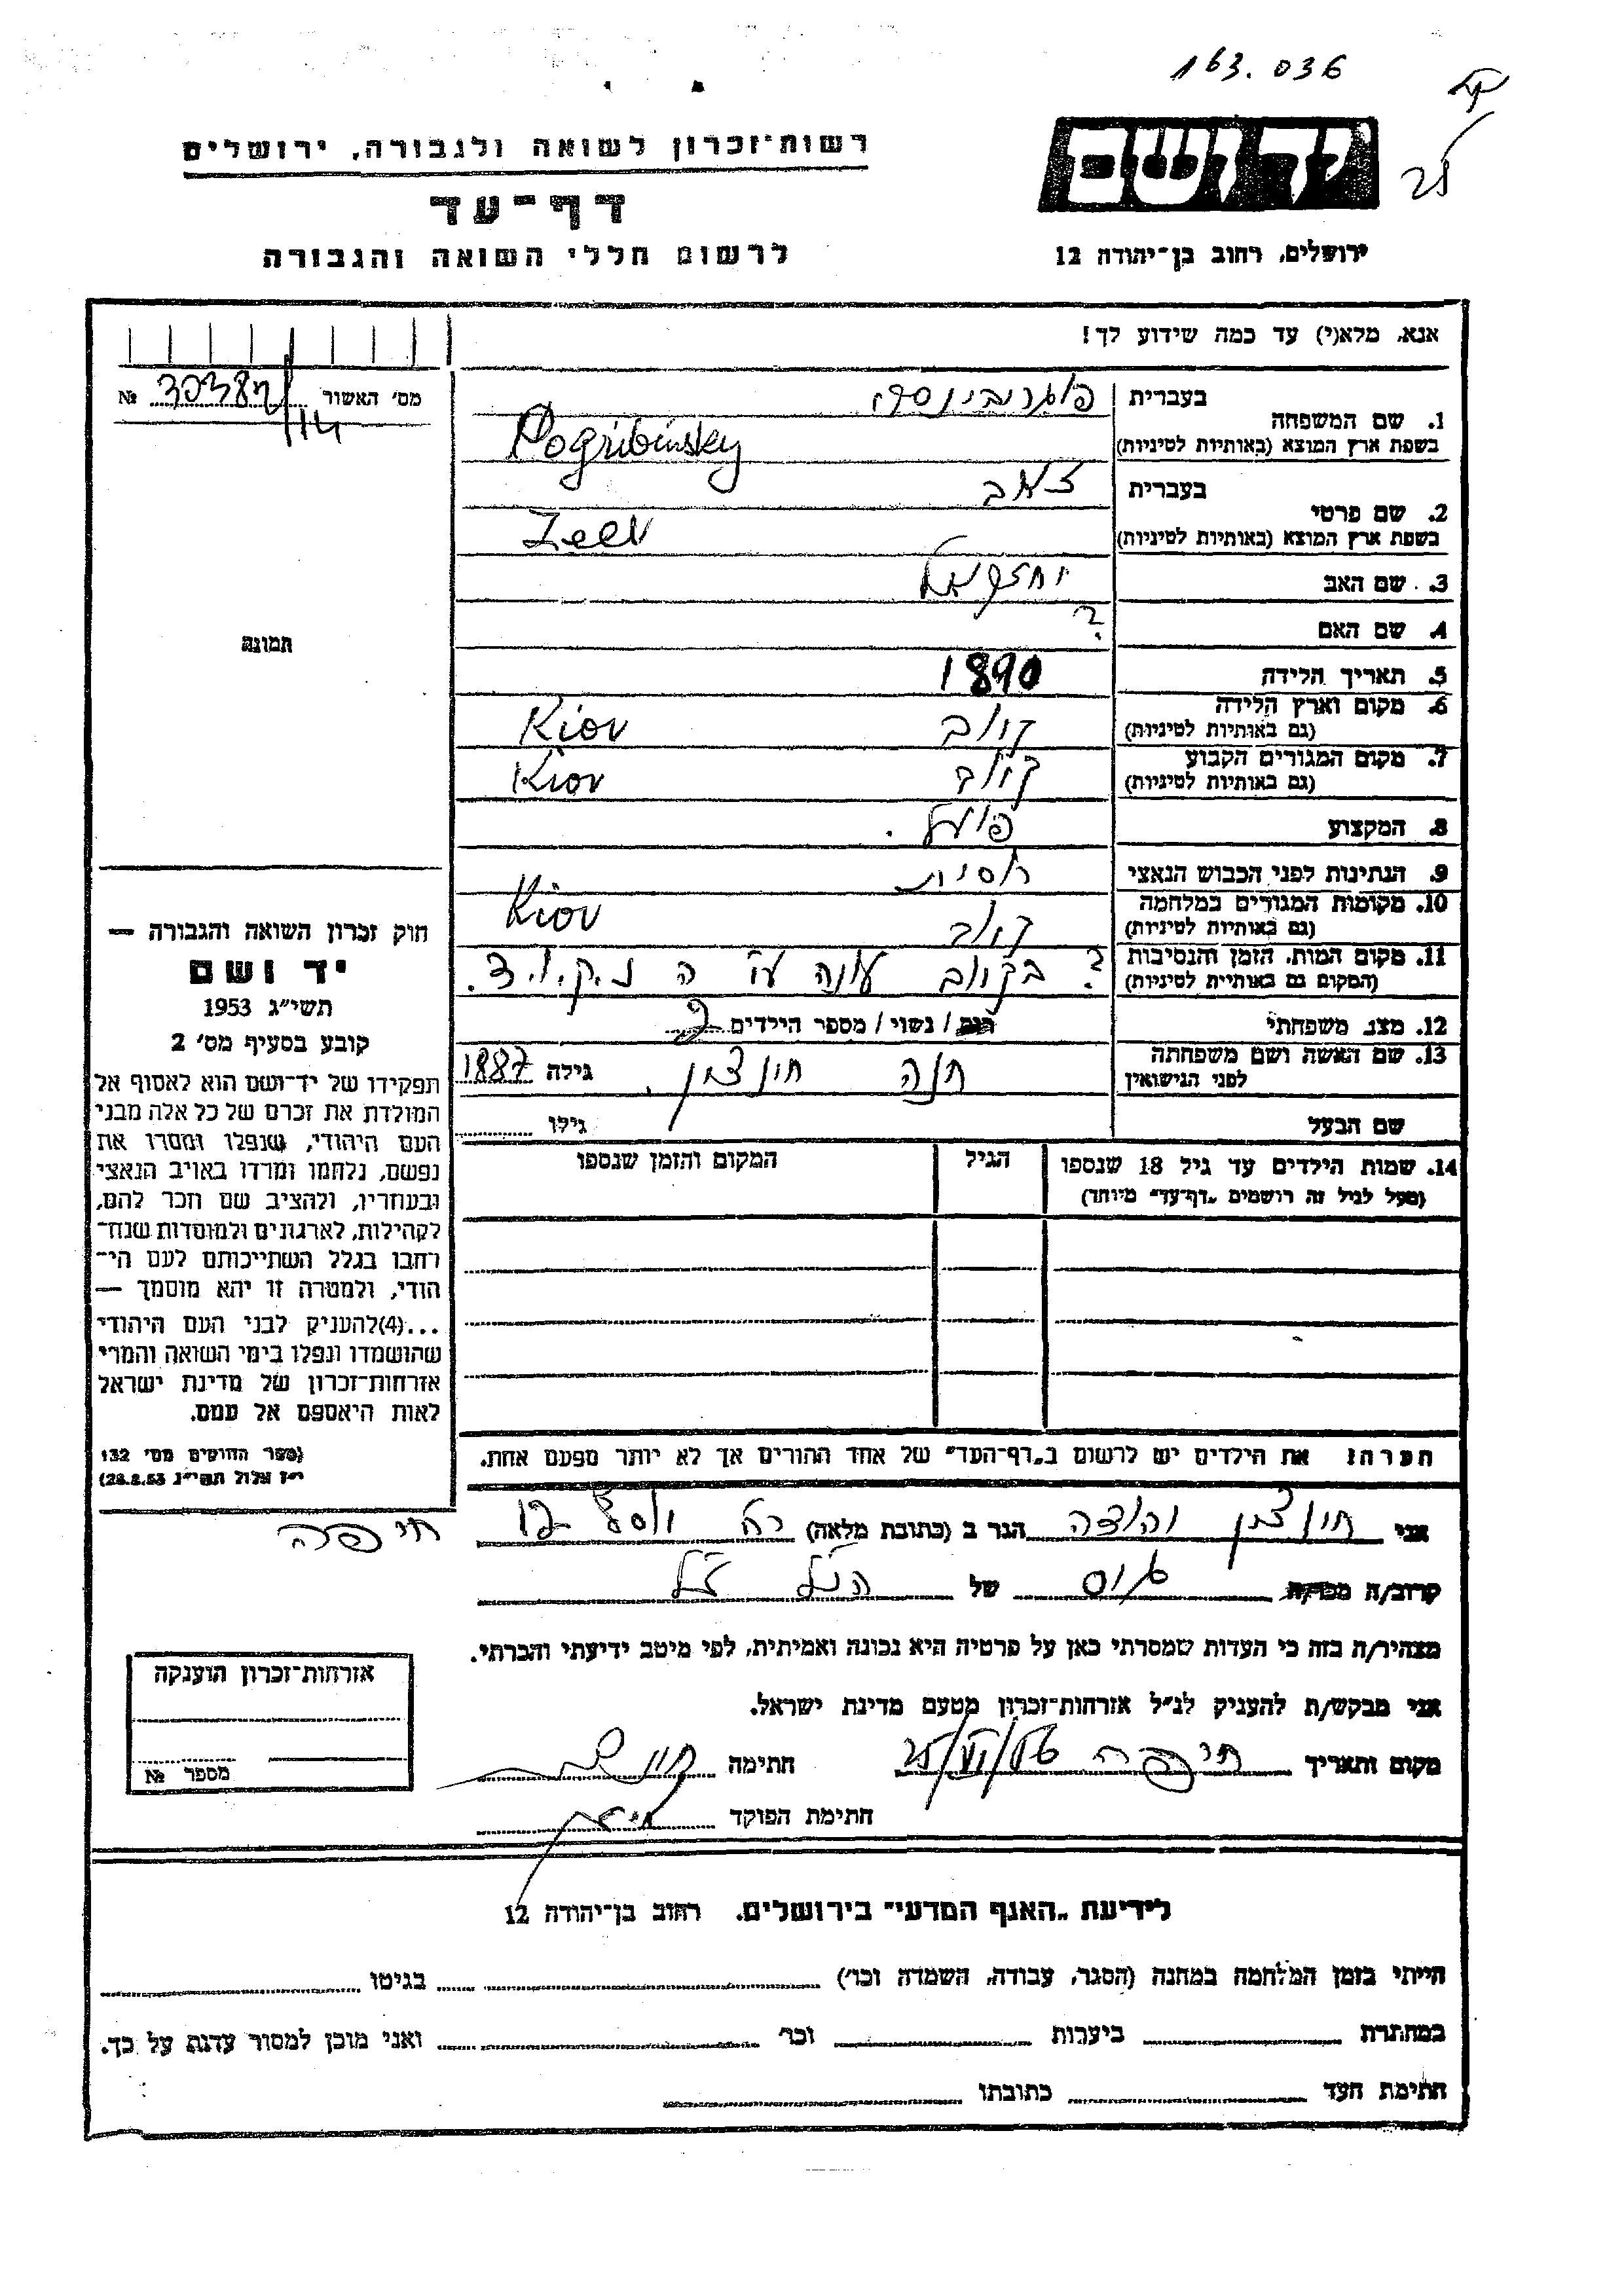 163.036
רשות־זכרון לשואה ולגבורה, ירושלים
יד ושם
דף־עד
לרשום חללי השואה והגבורה
ירושלים, רחוב בן־יהודה 12
אנא, מלא(י) עד כמה שידוע לך!
מס׳ האשור № 30384/14
תמונה
1. שם המשפחה בעברית פוגריבינסקי
בשפת ארץ המוצא (באותיות לטיניות) Pogribinsky
2. שם פרטי בעברית זאב
בשפת ארץ המוצא (באותיות לטיניות) Zeev
3. שם האב יחזקאל
4. שם האם ?
5. תאריך הלידה 1890
6. מקום וארץ הלידה
(גם באותיות לטיניות) קיוב Kiov
7. מקום המגורים הקבוע
(גם באותיות לטיניות) קיוב Kiov
8. המקצוע פועל.
9. הנתינות לפני הכבוש הנאצי רוסית
10. מקומות המגורים במלחמה
(גם באותיות לטיניות) קיוב Kiov
11. מקום המות, הזמן והנסיבות
(המקום גם באותיות לטיניות) ? בקיוב עונה ע״י ה נ.ק.ו.ד.
12. מצב משפחתי רוק/ נשוי/ מספר הילדים 2
13. שם האשה ושם משפחתה
לפני הנישואין חנה חונצין. גילה 1887
שם הבעל גילו
14. שמות הילדים עד גיל 18 שנספו
(מעל לגיל זה רושמים „דף־עד״ מיוחד)
הגיל
המקום והזמן שנספו
הערה: את הילדים יש לרשום ב„דף־העד״ של אחד ההורים אך לא יותר מפעם אחת.
חוק זכרון השואה והגבורה —
יד ושם
תשי״ג 1953
קובע בסעיף מס׳ 2
תפקידו של יד־ושם הוא לאסוף אל
המולדת את זכרם של כל אלה מבני
העם היהודי, שנפלו ומסרו את
נפשם, נלחמו ומרדו באויב הנאצי
ובעוזריו, ולהציב שם וזכר להם,
לקהילות, לארגונים ולמוסדות שנח־
רחבו בגלל השתייכותם לעם הי־
הודי, ולמטרה זו יהא מוסמך —
...(4)להעניק לבני העם היהודי
שהושמדו ונפלו בימי השואה והמרי
אזרחות־זכרון של מדינת ישראל
לאות היאספם אל עמם.
(ספר החוקים מס׳ 132
י״ז אלול תשי״ג 28.8.53)
אני חונצין יהודה הגר ב (כתובת מלאה) רח יוסף 12 חיפה
קרוב/ה מכר/ה גיס של הנ״ל ז״ל
מצהיר/ה בזה כי העדות שמסרתי כאן על פרטיה היא נכונה ואמיתית, לפי מיטב ידיעתי והכרתי.
אני מבקש/ת להעניק לנ״ל אזרחות־זכרון מטעם מדינת ישראל.
מקום ותאריך חיפה חתימה
חתימת הפוקד
אזרחות־זכרון הוענקה
מספר №
לידיעת „האגף המדעי״ בירושלים, רחוב בן־יהודה 12
הייתי בזמן המלחמה במחנה (הסגר, עבודה, השמדה וכו׳) בגיטו
במחתרת ביערות וכו׳ ואני מוכן למסור עדות על כך.
חתימת העד כתובתו